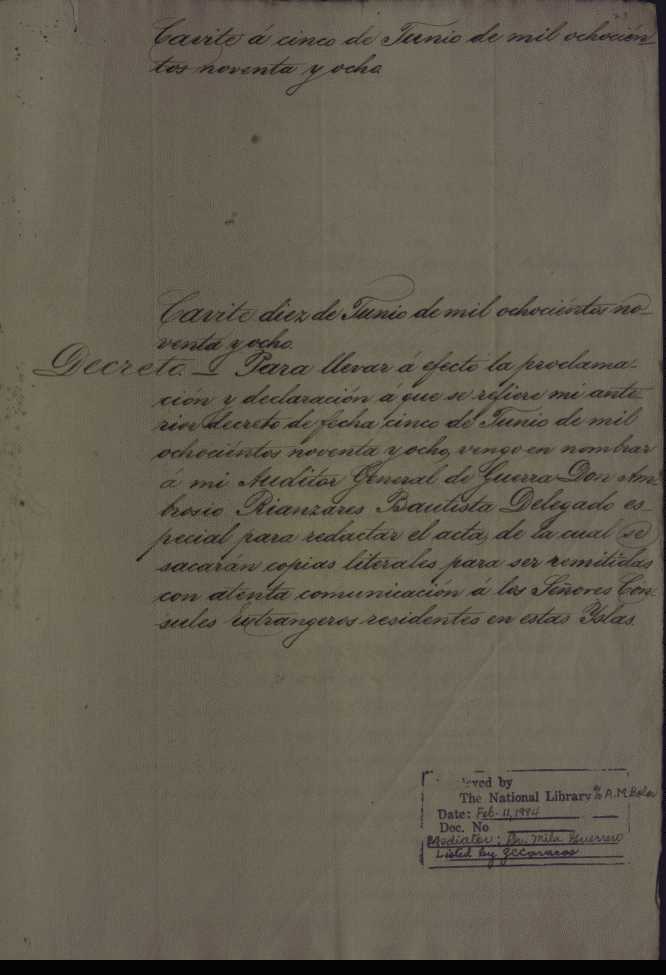 Cavite á cinco de Junio de mil ochocién_
tos noventa y ocho.
Cavite diez de Junio de mil ochociéntos no_
venta y ocho.
Decreto. — Para llevar á efecto la proclama-
ción y declaración á que se refiere mi ante-
rior decreto de fecha cinco de Junio de mil
ochociéntos noventa y ocho, vengo en nombrar
á mi Auditor General de Guerra Don Am-
brosio Rianzares Bautista Delegado es_
pecial para redactar el acta, de la cual se
sacarán copias literales para ser remitidas
con atenta comunicación á los Señores Cón-
sules extrangeros residentes en estas Yslas.
by
The National Library % A.M.
Date: Feb. 11, 1994
Doc. No
Mediator: Dr. Mila Guerrero
Listed by